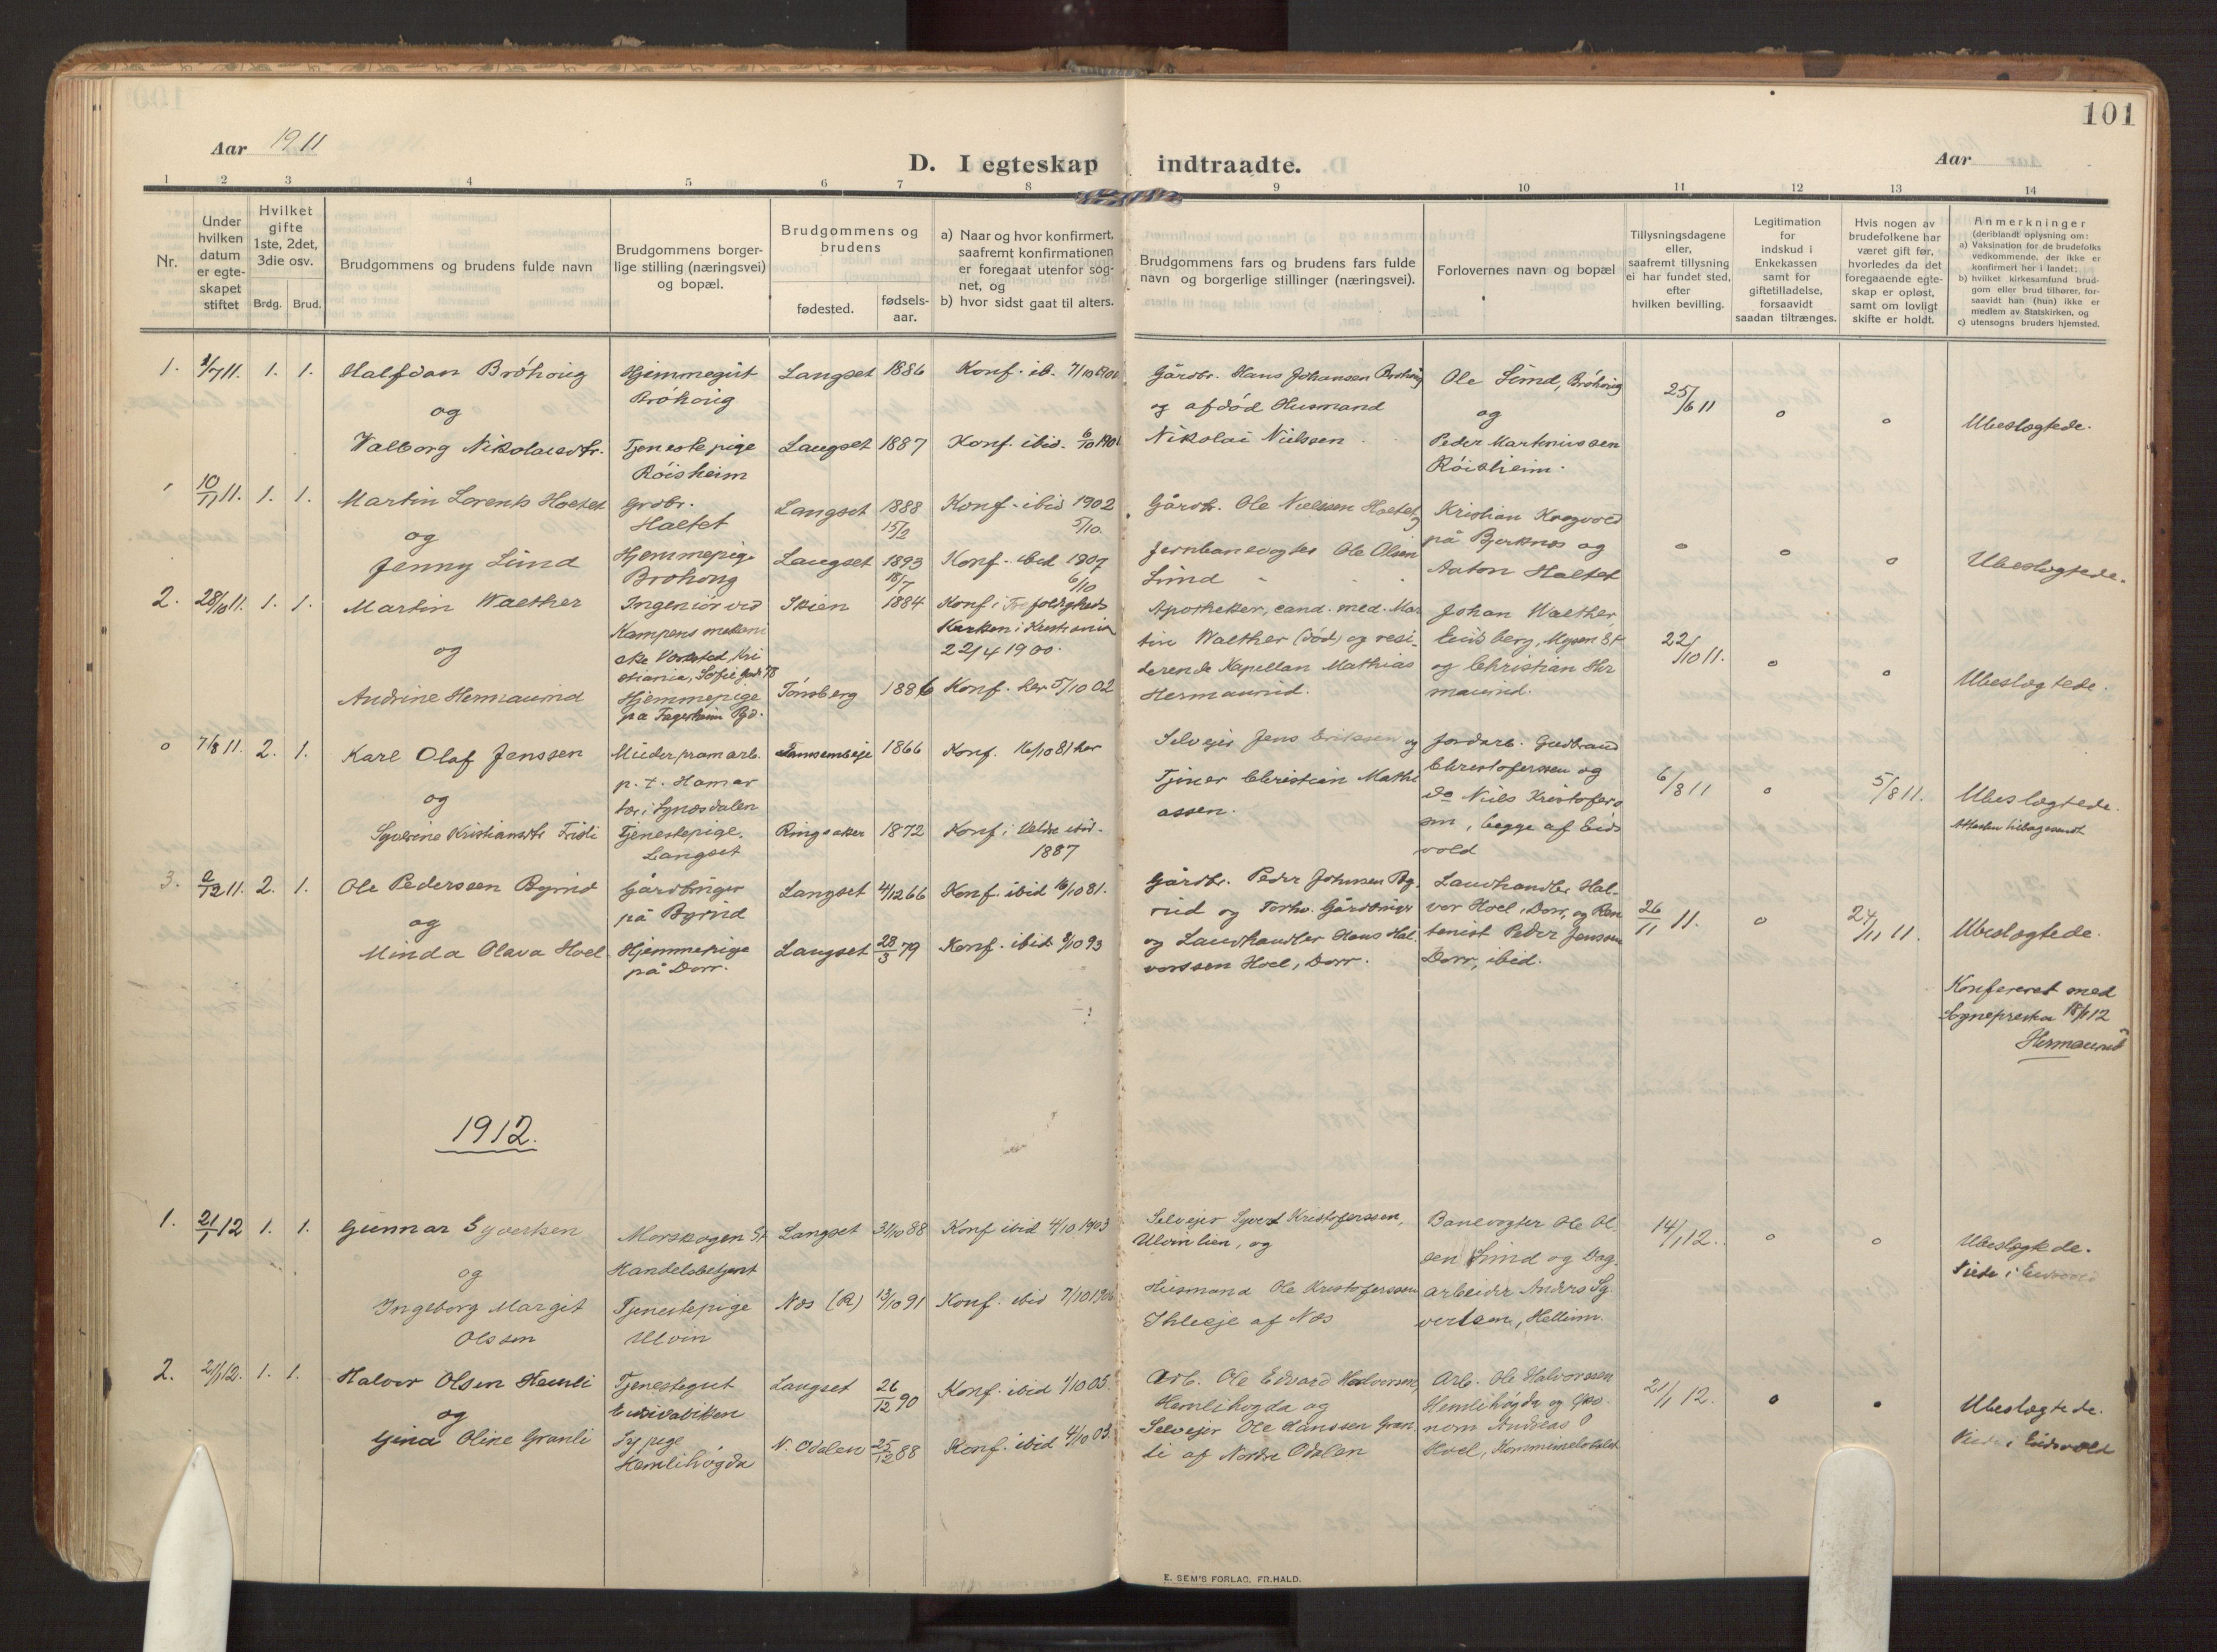 101
Aar 1911
D. I egteskap indtraadte.
Aar
1 2 3 4 5 6 7 8 9 10 11 12 13 14
Nr.
Under hvilken datum er egteskapet stiftet
Hvilket gifte 1ste, 2det, 3die osv.
Brdg. Brud.
Brudgommens og brudens fulde navn
Brudgommens borger-
lige stilling (næringsvei)
og bopæl.
Brudgommens og
brudens
fødested.
fødsels-
aar.
a) Naar og hvor konfirmert,
saafremt konfirmationen
er foregaat utenfor sog-
net, og
b) hvor sidst gaat til alters.
Brudgommens fars og brudens fars fulde
navn og borgerlige stillinger (næringsvei).
Forlovernes navn og bopæl
Tillysningsdagene
eller,
saafremt tillysning
ei har fundet sted,
efter
hvilken bevilling.
Legitimation
for
indskud i
Enkekassen
samt for
giftetilladelse,
forsaavidt
saadan tiltrænges.
Hvis nogen av
brudefolkene har
været gift før,
hvorledes da det
foregaaende egte-
skap er opløst,
samt om lovligt
skifte er holdt.
Anmerkninger
(deriblandt oplysning om:
a) Vaksination for de brudefolks
vedkommende, der ikke er
konfirmert her i landet;
b) hvilket kirkesamfund brud-
gom eller brud tilhører, for-
saavidt han (hun) ikke er
medlem av Statskirken, og
c) utensogns bruders hjemsted.
1. 1. 1. Halfdan Bröhoug Hjemmegut Langset 1886 Konf. ib. Gårdbr. Hans Johansen Ole Lund, Bröhoug 25/6 11
Bröhoug
og og afdöd Husmand og o o Ubeslegtede.
Valborg Nikolaisdtr. Tjenestepige Langset 1887 Konf. ibid. Nikolai Nielssen Peder Martinussen
Röisheim Röisheim.
10/11 11. 1. 1. Martin Lorents Holtet Grdbr. Langset 1888 Konf. ibid 1902 Gårdb. Ole Nielssen Kristian
Haltet 15/2 5/10
og på Bjerknes og
Jenny Lund Hjemmepige Langset 1893 Konf. ibid 1907 Jernbanevogter Ole Olsen Anton Haltet o o o Ubeslegtede.
Brohoug 18/7 6/10 Lund
2. 28/10 11. 1. 1. Martin Walther Ingeniör ved Skien 1884 Konf. i Apotheker, cand. med. Mar Johan Walther,
Kampens mekani Kirken i Kristiania tin Walther (död) og resi- Eidsberg, Mysen St 22/10 11.
og ske Værksted, Kri 22/4 1900. derende Kapellan Mathias og Christian Her o o
stiania, Sofie
Andrine Hermanrud Hjemmepige Tönsberg 1886 Konf. her 5/10 02 Hermanrud. manrud. Ubeslegtede.
på Fagerheim
o 7/8 11. 2. 1. Karl Olaf Jenssen 1866 Konf. 16/10 81 her Selveier Jens Erikssen og Jordarb. Gudbrand
p. t. Hamar Tjener Christian Mathi Christoferssen og 6/8 11 o 5/8 11. Ubeslegtede.
og assen. do Niels Kristofers
Kristiansdtr Tjenestepige, Ringsaker 1872 Konf. i ibid. sen, begge af Eids
Langset 1887 vold
3. 2/12 11. 2. 1. Ole Pederssen Byrud Gårdbruger Langset 4/12 66 Konf. ibid 16/10 81. Gårdbr. Peder Johnsen By- Landhandler Hal-
på Byrud rud og vor Hoel, Dorr, og 26/11 11. o 24/11 11. Ubeslegtede.
og og Landhandler Hans Hal- Peder Jenssen
Minda Olava Hoel. Hjemmepige Langset 28/3 79 Konf. ibid 8/10 93 vorssen Hoel, Dorr. Dorr, ibid.
på Dorr.
Konfereret med
18/1 12
Hermanrud
1912.
1. 21/1 12 1. 1. Gunnar Syvertsen Morskogen St. Langset 31/10 88 Konf ibid 4/10 1903 Selveier Syvert Kristoferssen, Banevogter Ole Ol 14/1 12. o o Ubeslegtede.
Ulvinlien, og sen Lund og Dag-
og Handelsbetjent Viede i Eidsvold
Ingeborg Margit Tjenestepige Nes (R) 13/10 91 Konf. ibid 7/10 1906 Husmand Ole Kristoferssen arbeider Anders Sy-
Olssen Ulvin af Nes vertsen,
2. 21/1 12. 1. 1. Halvor Olsen Hemli Tjenestegut Langset 26/12 90 Konf. ibid 1/10 05. Arb. Ole Edvard Halvorsen, Arb. Ole Halvorssen 21/1 12.
og Hemlihögda og Hemlihögda og Öko-
Gina Oline Granli Sypige N. Odalen 25/12 88 Konf. ibid 4/10 03. Selveier Ole Hanssen Gran- nom Andreas Ubeslegtede.
Hemlihögda li af Nordre Odalen Hoel, Kommunelokalet Viede i Eidsvold
E. SEM'S FORLAG, FR.HALD.